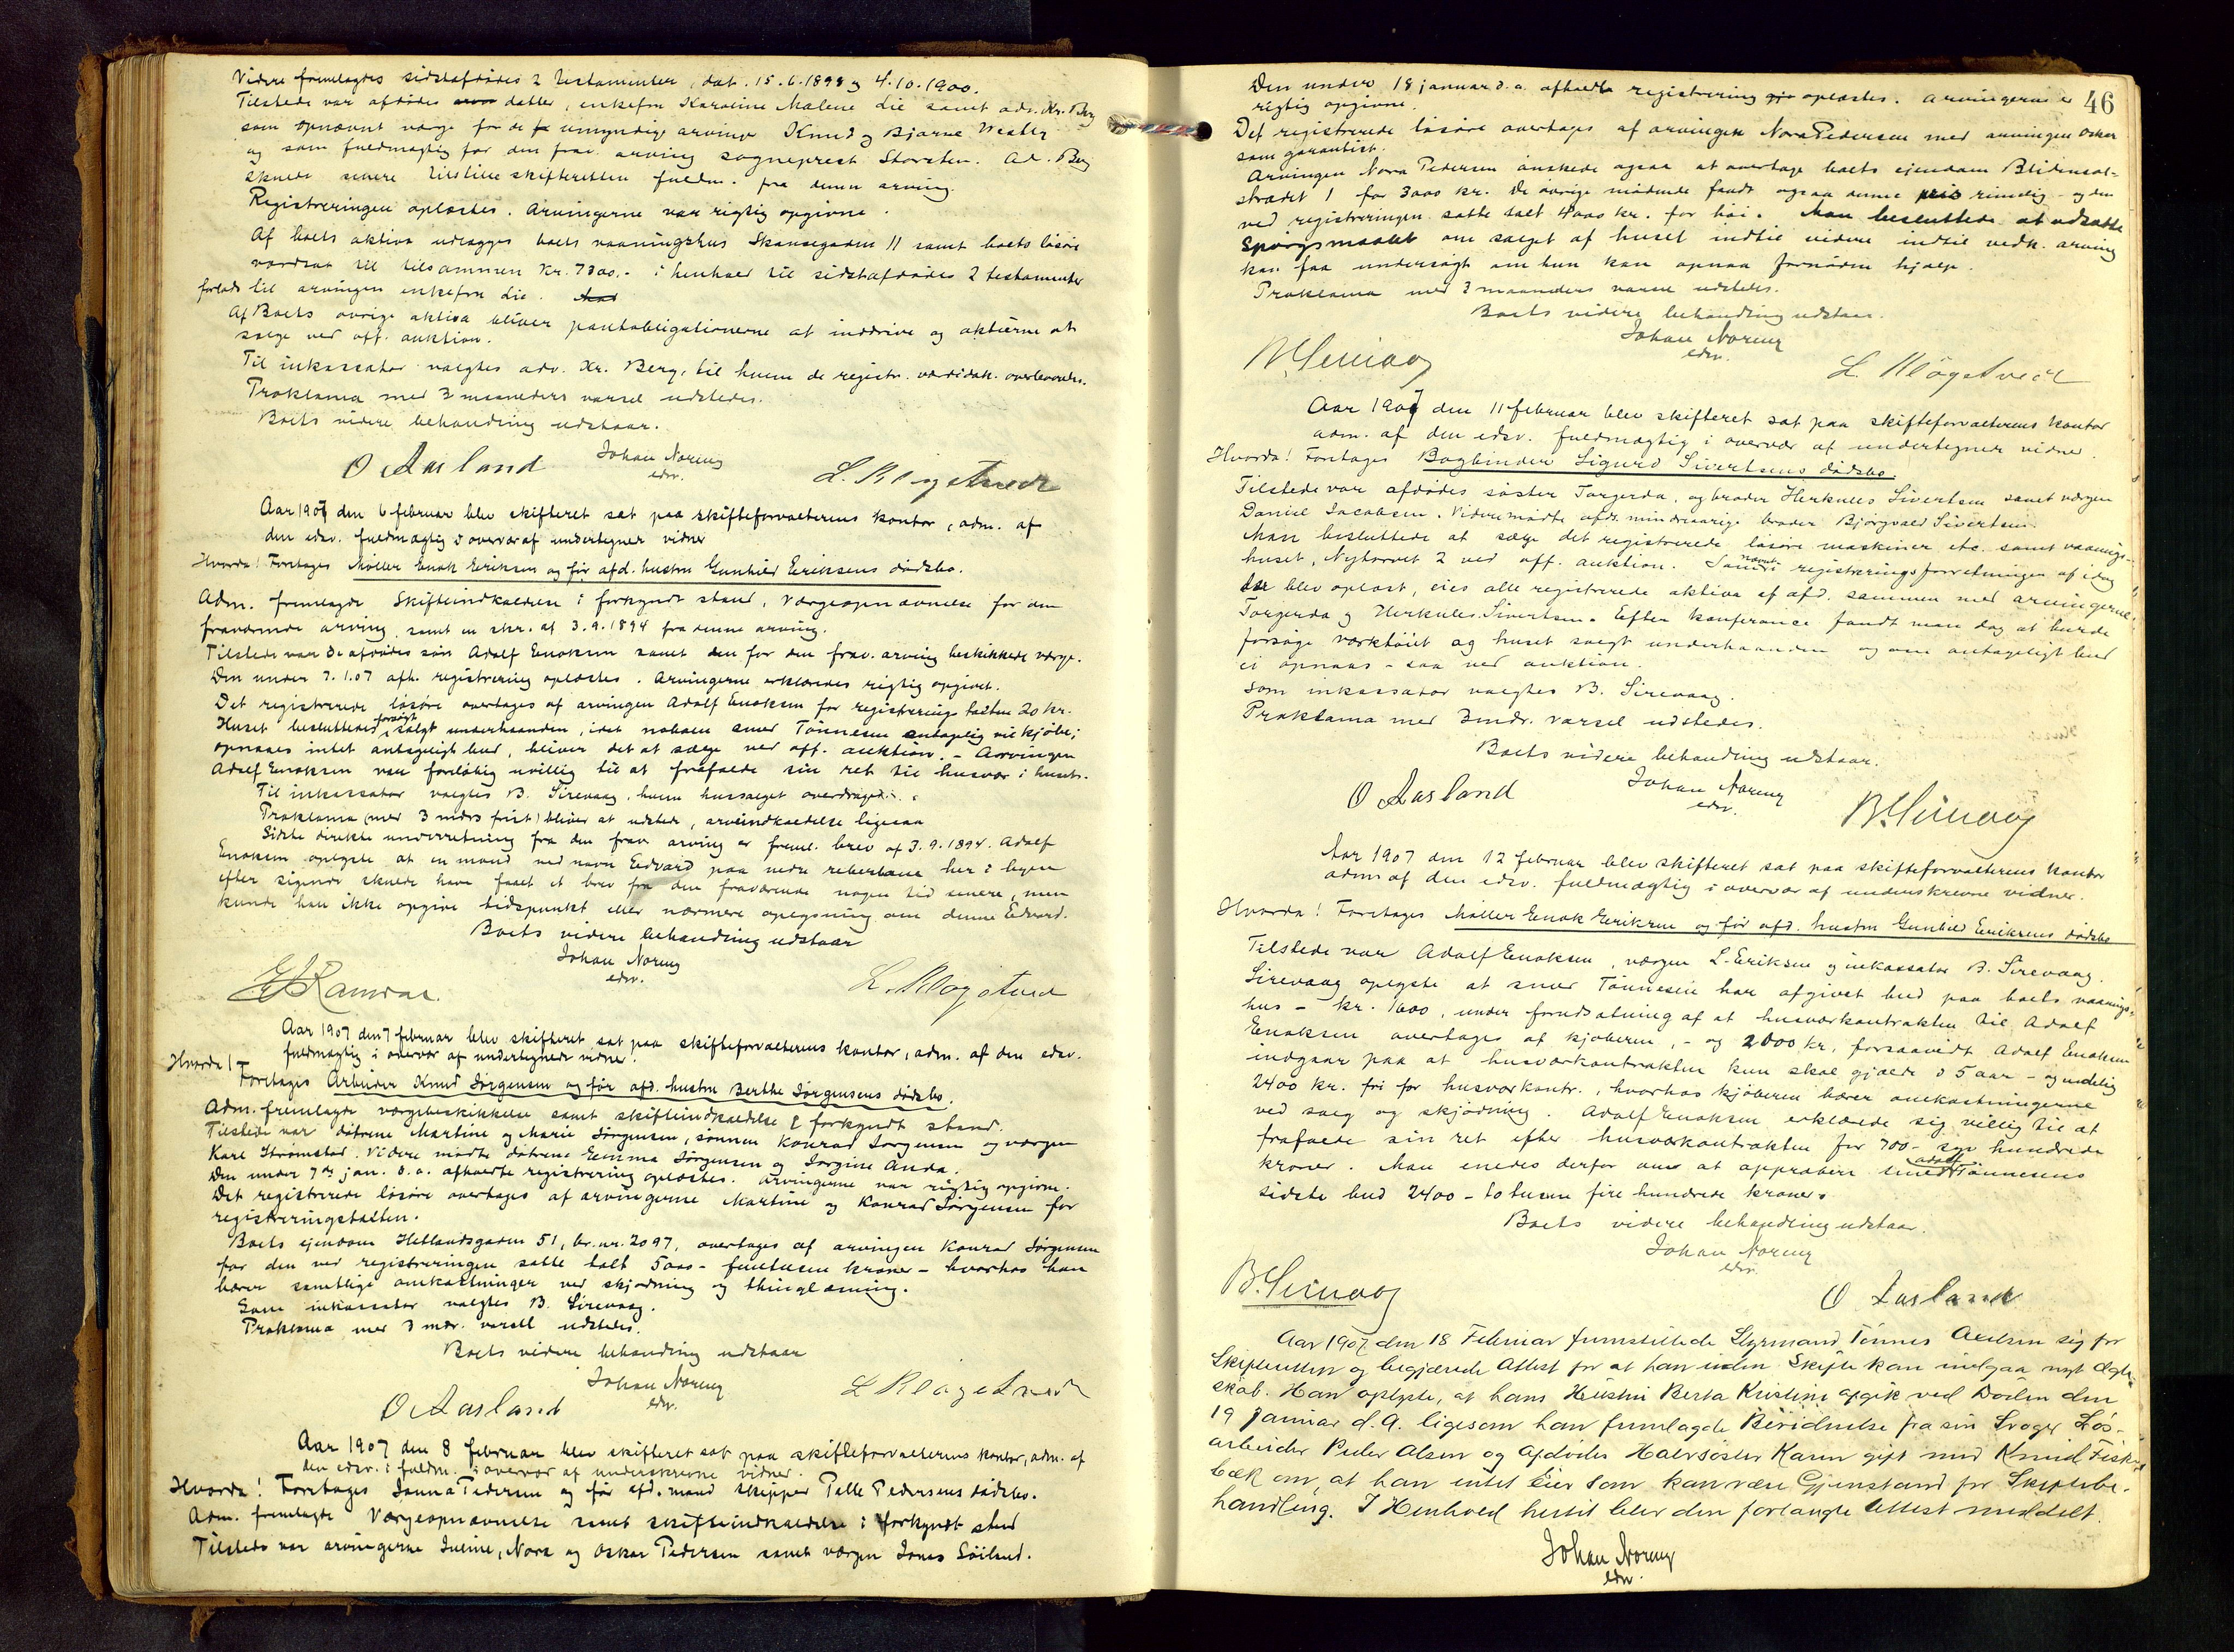 Videre fremlagdes sidstafdødes 2 testamenter, dat. 15.6.1898 og 4.10.1900.
Tilstede var afdødes datter, enkefru Karoline Malene Lie samt adv. Kr. Berg
som opnævnt værge for de umyndige arvinge Knud og Bjarne
og som fuldmægtig for den frav. arving sogneprest Ad. Berg
skulde senere tilstille skifteretten fuldm. fra denne arving.
Registreringen oplæstes. Arvingerne var rigtig opgivne.
Af boets aktiva udlægges boets vaaningshus Skansegaden 11 samt boets løsøre
værdsat til tilsammen kr. 7300.- i henhold til sidstafdødes 2 testamenter
forlods til arvingen enkefru Lie.
Af Boets øvrige aktiva bliver pantobligationerne at inddrive og aktierne at
sælge ved off. auktion.
Til inkassator valgtes adv. Kr. Berg, til hvem de registr. værdidok. overleveredes.
Proklama med 3 maaneders varsel udstedes.
Boets videre behandling udstaar.
O Aasland Johan Noreng L. Kløgetvedt
edsv.
Aar 1907 den 6 februar blev skifteret sat paa skifteforvalterens kontor, adm. af
den edsv. fuldmægtig i overvær af undertegnede vidner
Hvorda! Foretages Møller Enok Eriksen og før afd. hustru Gunhild Eriksens dødsbo.
Adm. fremlagde Skifteindkaldelse i forkyndt stand, værgeopnævnelse for den
fraværende arving, samt en skr. af 3.9.1894 fra denne arving.
Tilstede var de afdødes søn Adolf Enoksen samt den for den frav. arving beskikkede værge.
Den under 7.1.07 afh. registrering oplæstes. Arvingerne erklæredes rigtig opgivet.
Det registrerede løsøre overtages af arvingen Adolf Enoksen for registreringstaksten 20 kr.
Huset besluttedes forsøgt solgt underhaanden, idet naboen smed Tønnesen antagelig vil kjøbe;
opnaaes intet antageligt bud, bliver det at sælge ved off. auktion. - Arvingen
Adolf Enoksen var foreløbig uvillig til at frafalde sin ret til husvær i huset.
Til inkassator valgtes B. Sirevaag, hvem hussalget overdroges.
Proklama (med 3 mdrs frist) bliver at udstede, arveindkaldelse ligesaa
Sidste direkte underretning fra den frav. arving er freml. brev af 3.9.1894. Adolf
Enoksen oplyste at en mand ved navn Edvard paa nedre reberbane her i byen
efter sigende skulde have faaet et brev fra den fraværende nogen tid senere, men
kunde han ikke opgive tidspunkt eller nærmere oplysning om denne Edvard.
Boets videre behandling udstaar
Johan Noreng
edsv.
L. Kløgetvedt
Aar 1907 den 7 februar blev skifteret sat paa skifteforvalterens kontor, adm. af den edsv.
fuldmægtig i overvær af undertegnede vidner.
Hvorda! Foretages Arbeider Knud Jørgensen og før afd. hustru Berthe Jørgensens dødsbo.
Adm. fremlagde værgebeskikkelse samt skifteindkaldelse i forkyndt stand.
Tilstede var døtrene Martine og Marie Jørgensen, sønnen Konrad Jørgensen og værgen
Karl Strømstad. Videre mødte døtrene Emma Jørgensen og Jørgine Anda.
Den under 7de jan. d.a. afholdte registrering oplæstes. Arvingerne var rigtig opgivne.
Det registrerede løsøre overtages af arvingerne Martine og Konrad Jørgensen for
registreringstakten.
Boets eiendom Hetlandsgaden 51, br.nr. 2097, overtages af arvingen Konrad Jørgensen
for den ved registreringen satte takt 5000 - femtusen kroner - hvorhos han
bærer samtlige omkostninger ved skjødning og thinglæsning.
Som inkassator valgtes B. Sirevaag.
Proklama med 3 mdr. varsel udstedes.
Boets videre behandling udstaar
Johan Noreng
edsv.
O Aasland L Kløgetvedt
Aar 1907 den 8 februar blev skifteret sat paa skifteforvalterens kontor, adm. af
den edsv. fuldm. i overvær af underskrevne vidner.
Hvorda! Foretages Janna Pedersen og før afd. mand skipper Palle Pedersens dødsbo.
Adm. fremlagde Værgeopnævnelse samt skifteindkaldelse i forkyndt stand
Tilstede var arvingerne Juline, Nora og Oskar Pedersen samt værgen Jonas Søiland.
46
Den under 18 januar d.a. afholdte registrering oplæstes. Arvingerne er
rigtig opgivne.
Det registrerede løsøre overtages af arvingen Nora Pedersen med arvingen Oskar
som garantist.
Arvingen Nora Pedersen ønskede ogsaa at overtage boets eiendom Blidensol-
strædet 1 for 3000 kr. De øvrige mødende fandt ogsaa denne pris rimelig - og den
ved registreringen satte takt 4000 kr. for høi. Man besluttede at udsætte
Spørgsmaalet om salget af huset indtil videre indtil vedk. arving
kan faa undersøgt om hun kan opnaa fornøden hjælp.
Proklama med 3 maaneders varsel udstedes.
Boets videre behandling udstaar.
Johan Noreng
edsv.
B. Sirevaag L. Kløgetvedt
Aar 1907 den 11 februar blev skifteret sat paa skifteforvalterens kontor
adm. af den edsv. fuldmægtig i overvær af undertegnede vidner.
Hvorda! Foretages Bogbinder Sigurd Sivertsens dødsbo.
Tilstede var afdødes søster Torgerda, og broder Herkules Sivertsen samt værgen
Daniel Jacobsen. Videre mødte afds. mindreaarige broder Bjørgvald Sivertsen.
Man besluttede at sælge det registrerede løsøre maskiner etc. samt vaanings-
huset, Nytorvet 2 ved off. auktion. registreringsforretningen af idag
der blev oplæst, eies alle registrerede aktiva af afd. sammen med arvingerne
Torgerda og Herkules Sivertsen. Efter konferance fandt man dog at burde
forsøge værktøiet og huset solgt underhaanden og om antageligt bud
ei opnaaes - saa ved auktion.
Som inkassator valgtes B. Sirevaag.
Proklama med 3 mdr. varsel udstedes.
Boets videre behandling udstaar.
O Aasland Johan Noreng B. Sirevaag
edsv.
Aar 1907 den 12 februar blev skifteret sat paa skifteforvalterens kontor
adm af den edsv. fuldmægtig i overvær af underskrevne vidner.
Hvorda! Foretages Møller Enok Eriksen og før afd. hustru Gunhild Eriksens dødsbo
Tilstede var Adolf Enoksen, værgen L. Eriksen og inkassator B. Sirevaag.
Sirevaag oplyste at smed Tønnesen har afgivet bud paa boets vaanings-
hus - kr. 1600, under forudsætning af at husværkontrakten til Adolf
Enoksen overtages af kjøberen, - og 2000 kr. forsaavidt Adolf Enoksen
indgaar paa at husværkontrakten kun skal gjælde i 5 aar - og endelig
2400 kr. fri for husværkontr., hvorhos kjøberen bærer omkostningerne
ved salg og skjødning. Adolf Enoksen erklærede sig villig til at
frafalde sin ret efter husværkontrakten for 700 - syv hundrede
kroner. Man enedes derfor om at approbere smed Tønnesens
sidste bud 2400 - totusen fire hundrede kroner.
Boets videre behandling udstaar.
Johan Noreng
edsv.
B. Sirevaag O Aasland
Aar 1907 den 18 Februar fremstillede Styrmand Tønnes Axelsen sig for
Skifteretten og begjærede Attest for at han uden Skifte kan indgaa nyt Ægte-
skab. Han oplyste, at hans Hustru Berta Kristine afgik ved Døden den
19 Januar d.A. ligesom han fremlagde Bevidnelse fra sin Svoger Løs-
arbeider Peder Olsen og Afdødes Halvsøster Karen gift med Knud Fiske-
bæk om, at han intet Eier som kan være Gjenstand for Skiftebe-
handling. I Henhold hertil blev den forlangte Attest meddelt.
Johan Noreng
edsv.